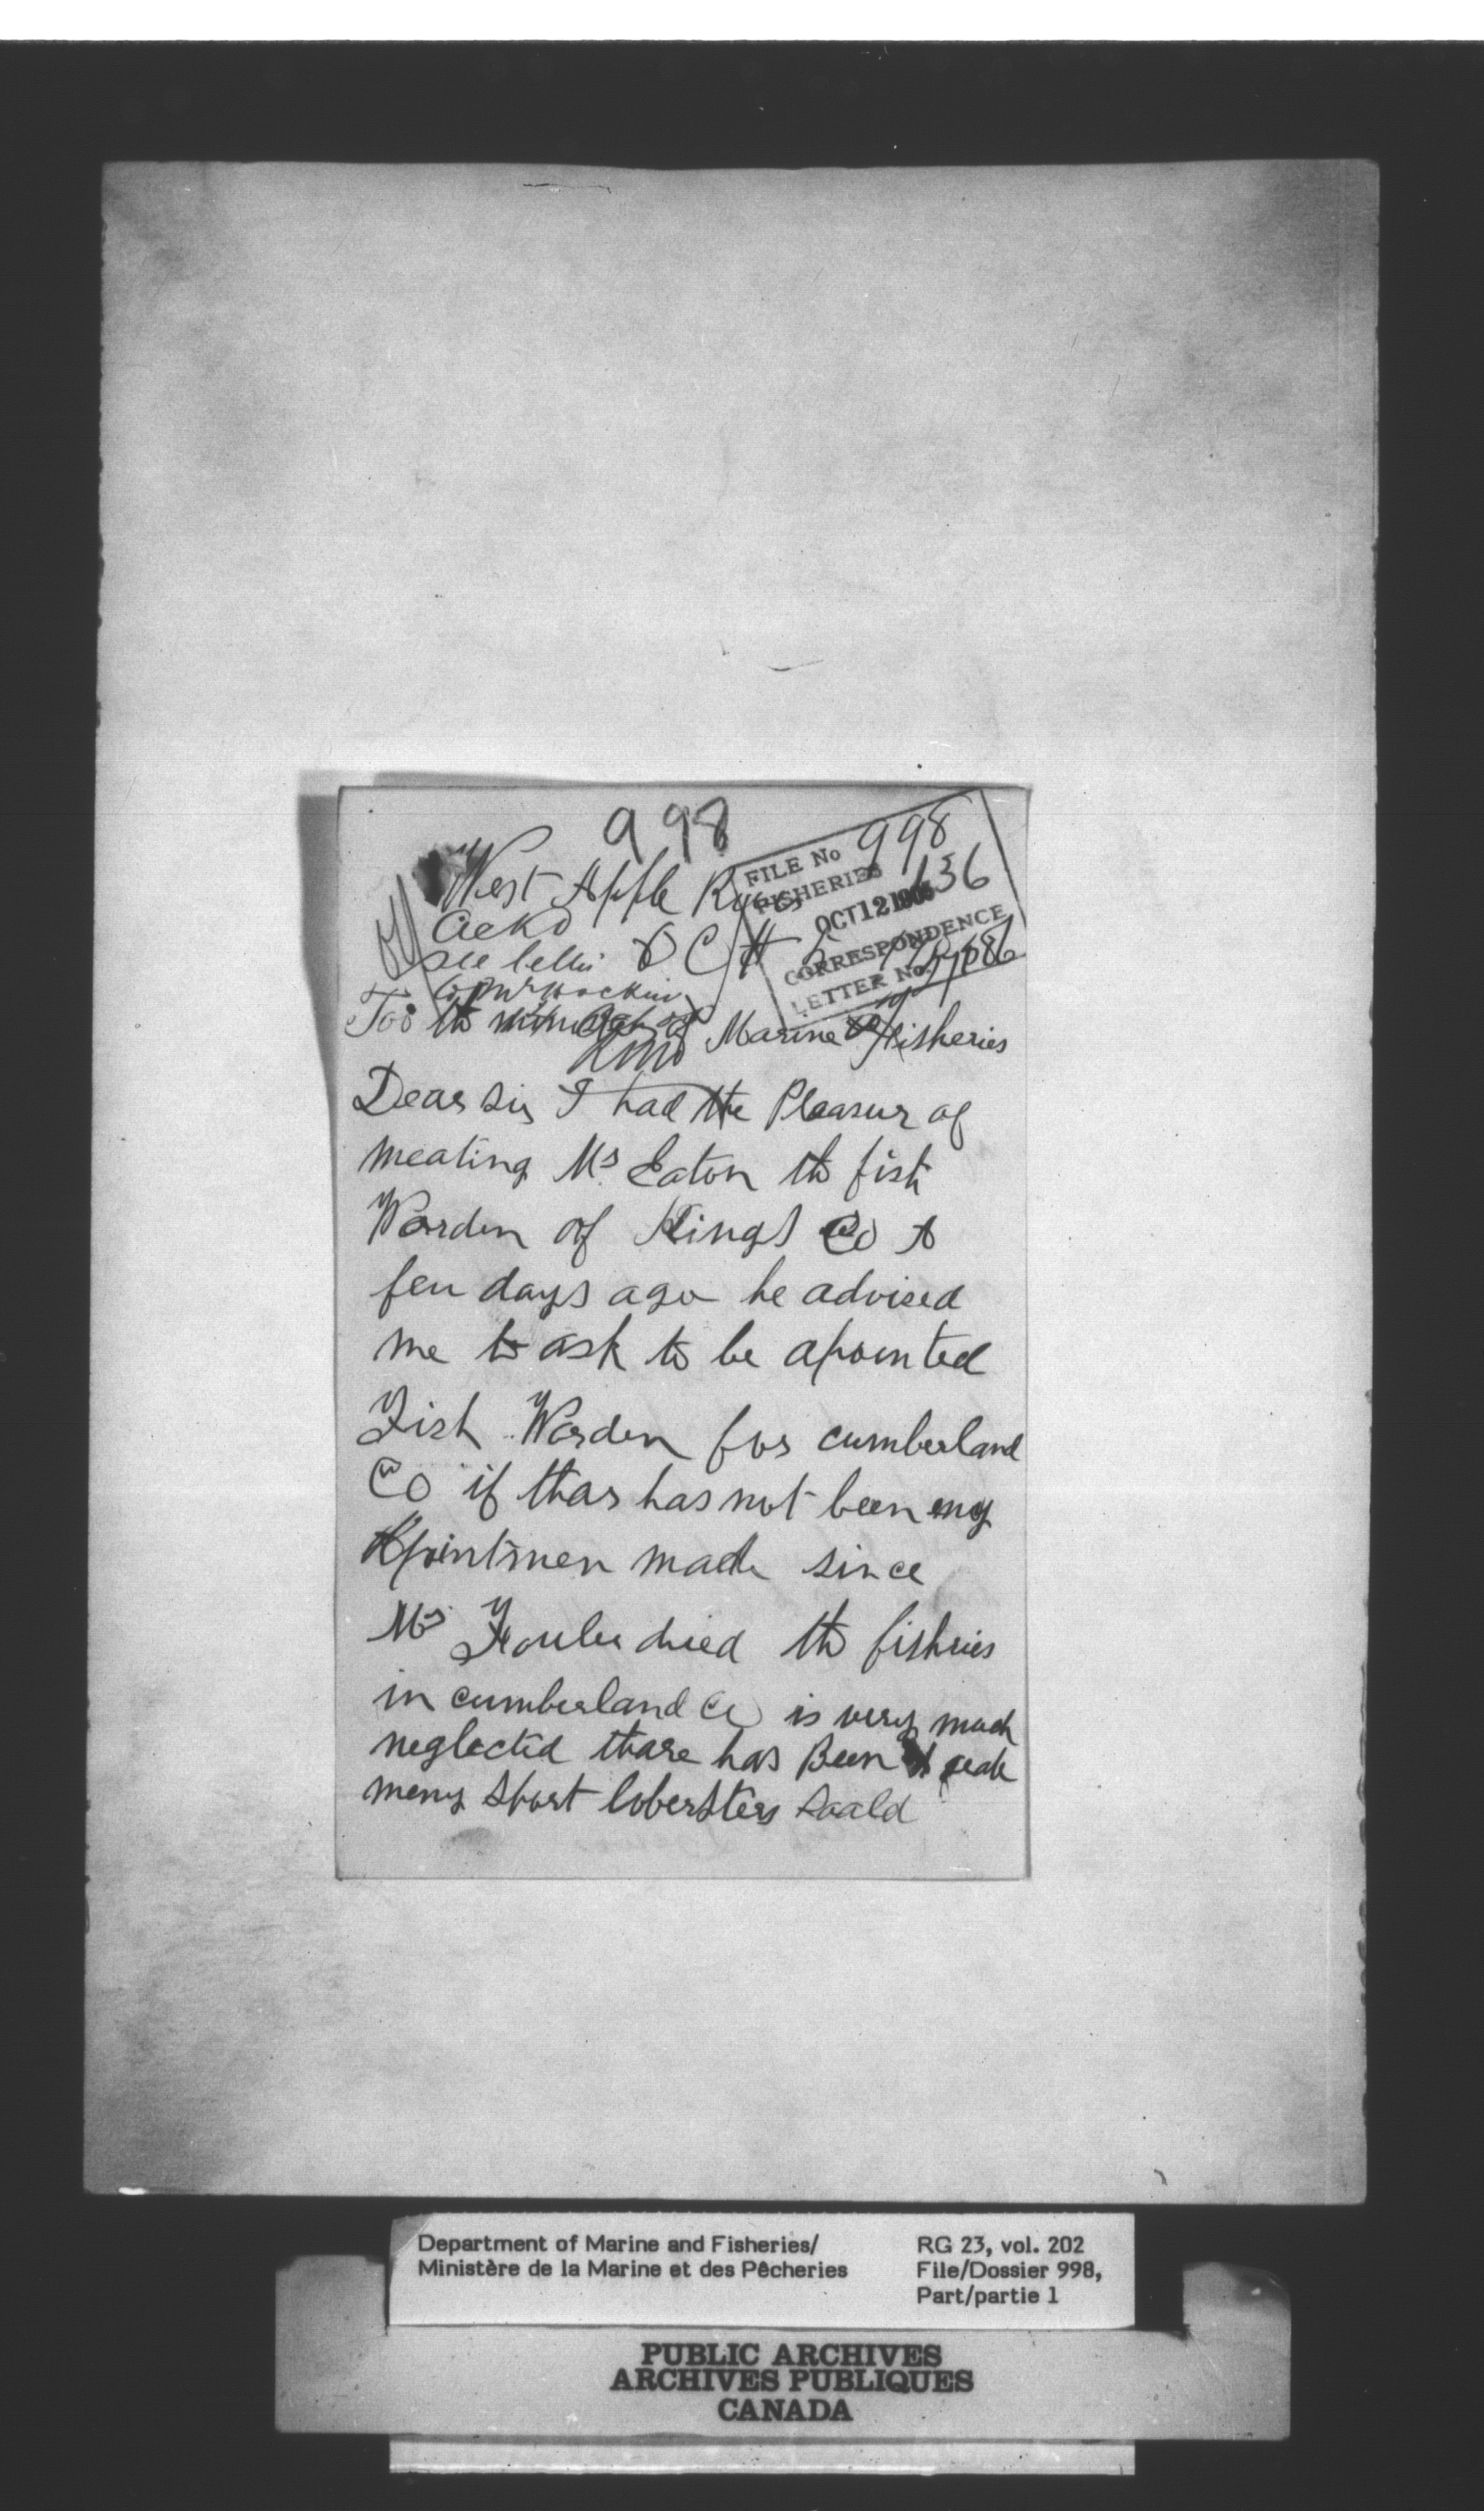 998
West Apple River
FILE No 998
FISHERIES 136
OCT 12 1905
CORRESPONDENCE
LETTER No.
Ackd
see letter
O C/H 5
Too th of Marine & fisheries
Dear Sir I had the Pleasur of
meating Mr Eaton th fish
Warden of Kings Co A
feu days ago he advised
me to ask to be apointed
Fish Warden for cumberland
Co if thar has not been eny
Apointmen made since
Mr Fouler died th fishries
in cumberland Co is very much
neglected thare has Been A geate
meny Short lobersters Saald
Department of Marine and Fisheries/
Ministère de la Marine et des Pêcheries
RG 23, vol. 202
File/Dossier 998,
Part/partie 1
PUBLIC ARCHIVES
ARCHIVES PUBLIQUES
CANADA